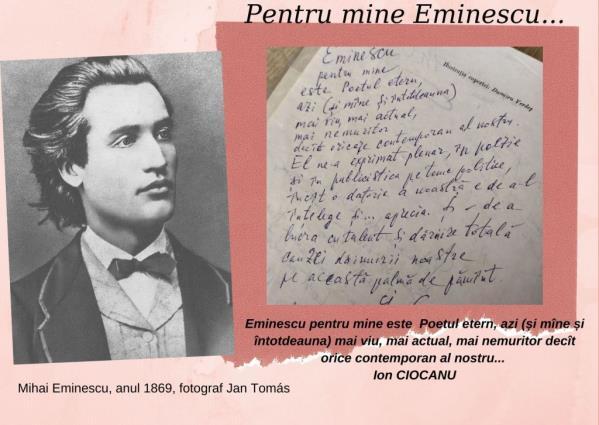 Pentru mine Eminescu...
Ilustrația copertei: Dumitru Verdeș
Eminescu
pentru mine
este Poetul etern,
azi (și mîne și întotdeauna)
mai viu, mai actual,
mai nemuritor
decît oricare contemporan al nostru.
El ne-a exprimat plenar, în poezie
și în publicistica pe teme politice,
încît o datorie a noastră e de a-l
înțelege și... aprecia. Și – de a
lucra cu talent și dăruire totală
cauzei dăinuirii noastre
pe această palmă de pămînt.
Eminescu pentru mine este Poetul etern, azi (și mîne și
întotdeauna) mai viu, mai actual, mai nemuritor decît
orice contemporan al nostru...
Ion CIOCANU
Mihai Eminescu, anul 1869, fotograf Jan Tomás